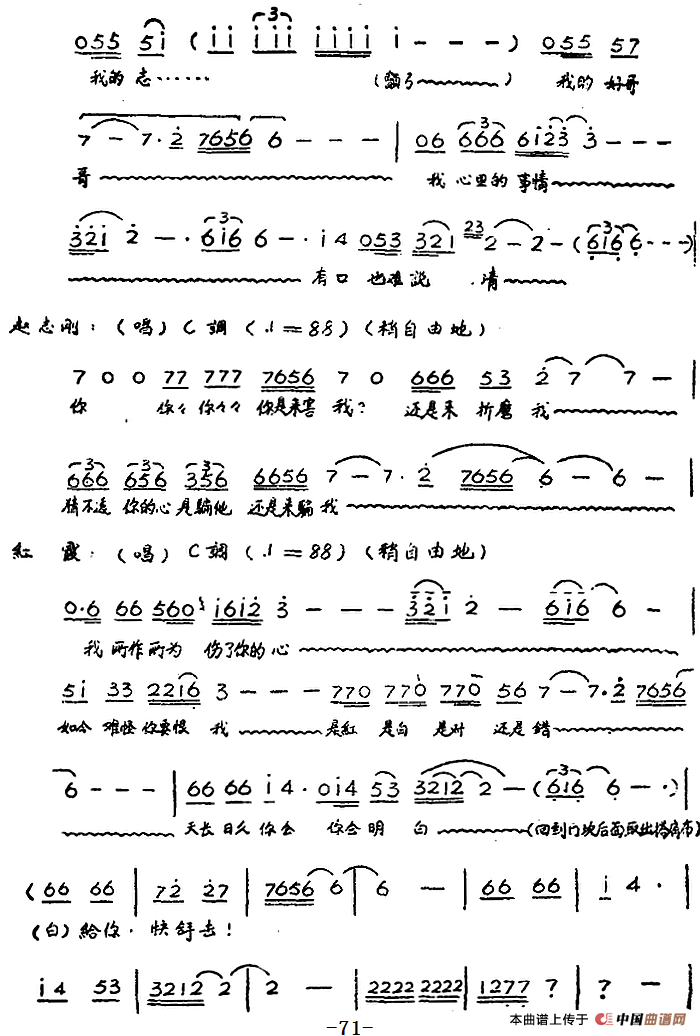 055 5i ( ii iii iiii i - - - ) 055 57
我的 志…… (锣鼓 ) 我的 好哥
7 - 7·2 7656 6 - - - | 06 666 6123 3 - - -
哥 我 心里的 事情
321 2 - - · 616 6 - · i 4 053 321 23 2 - 2 - ( 6166 - - - )
有口 也难说 清
赵志刚：（唱）C調（♩=88）（稍自由地）
7 0 0 77 777 7656 7 0 666 53 2 7 7 - |
你 你々 你々々 你是来害 我？ 还是来 折磨 我
666 656 356 6656 7 - 7·2 7656 6 - 6 - |
猜不透 你的心 是騙他 还是来騙 我
紅 霞：（唱）C調（♩=88）（稍自由地）
0·6 66 560 i6i2 3 - - - 321 2 - 6i6 6 - |
我 所作所为 伤了你的 心
5i 33 22i6 3 - - - 770 770 770 56 7 - 7·2 7656
如今 难怪 你要恨 我 是紅 是白 是对 还是 错
6 - - - | 66 66 i 4 · 0i4 53 3212 2 - ( 616 6 - · )
天长 日久 你会 你会 明 白 (回到门块后面取出 布)
( 66 66 | 72 27 | 7656 6 | 6 - | 66 66 | i 4 · |
(白) 給你，快舒去！
i4 53 | 3212 2 | 2 - | 2222 2222 | 1277 ? | ? - |
-71-
本曲谱上传于 中国曲谱网